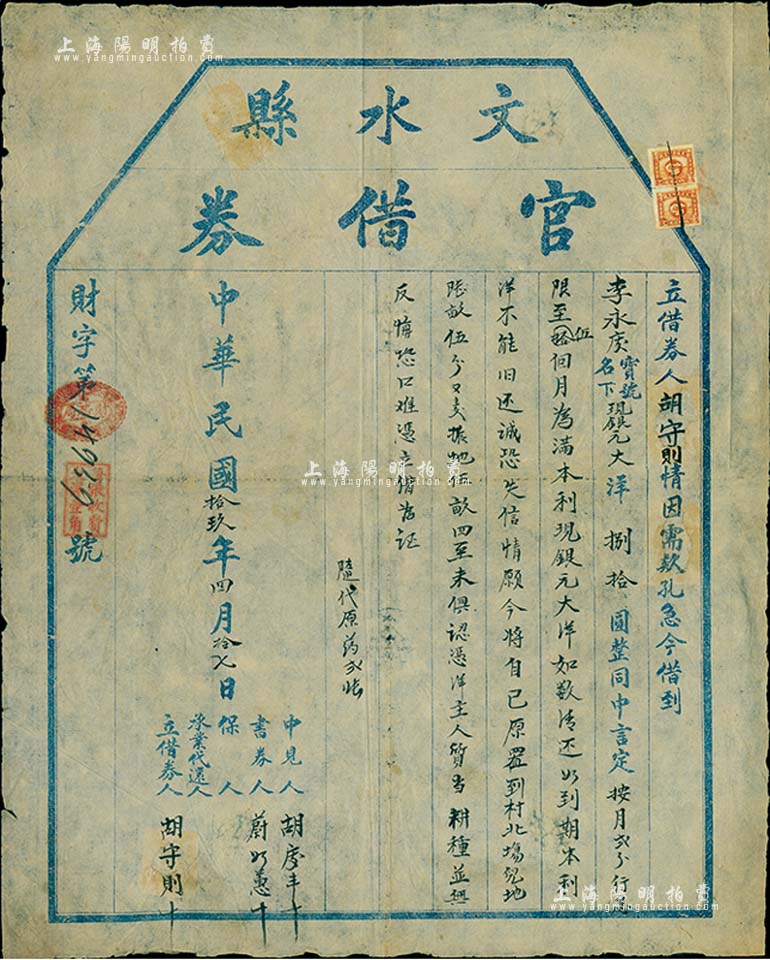 上海陽明拍賣
www.yangmingauction.com
文水縣
官借券
立借券人胡守則情因需款孔急今借到
李永庚寶號名下現銀元大洋捌拾圓整同中言定按月弍分行
限至伍個月為滿本利現銀元大洋如数清还如到期本利
洋不能旧还誠恐失信情願今將自已原置到村北塲兒地
畝伍分又地伍畝四至未俱認憑洋主人質当耕種並無
反悔恐口难憑立借為证
隨代原葯弍張
中華民國拾玖年四月拾七日
中見人 胡彦丰 十
書券人 蔚如蕙 十
保人
承業代還人
立借券人 胡守則 十
財字第14939號
上海陽明拍賣
www.yangmingauction.com
上海陽明拍賣
www.yangmingauction.com